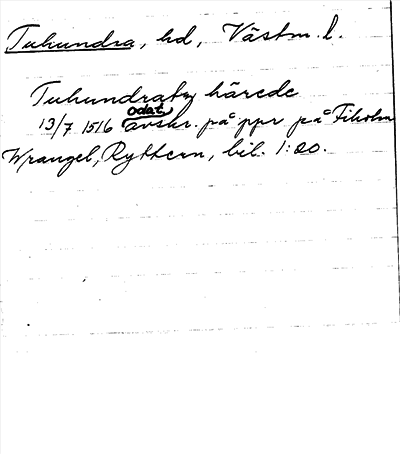 Tuhundra, hd, Västm. l.
Tuhundratz härede
odat.
13/7 1516 avskr. på ppr på Fiholm
Wrangel, Ryttern, bil. 1:20.